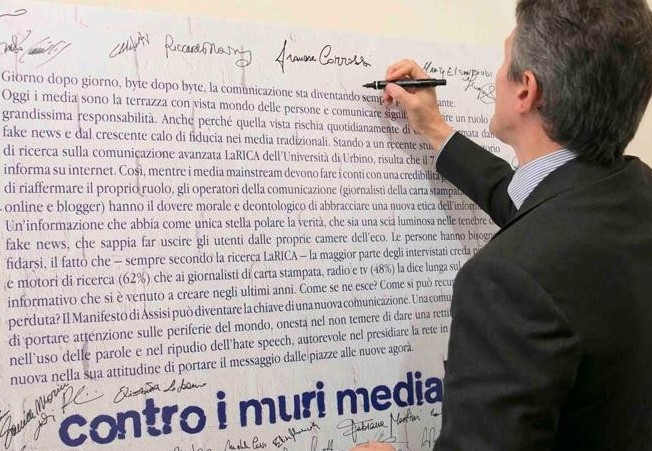 Riccardo
Simone
Giorno dopo giorno, byte dopo byte, la comunicazione sta diventando
Oggi i media sono la terrazza con vista mondo delle persone e comunicare un ruolo
grandissima responsabilità. Anche perché quella vista rischia quotidianamente di
fake news e dal crescente calo di fiducia nei media tradizionali. Stando a un recente
di ricerca sulla comunicazione avanzata LaRICA dell'Università di Urbino, risulta che il 7
informa su internet. Così, mentre i media mainstream devono fare i conti con una credibilità
di riaffermare il proprio ruolo, gli operatori della comunicazione (giornalisti della carta
online e blogger) hanno il dovere morale e deontologico di abbracciare una nuova etica
Un'informazione che abbia come unica stella polare la verità, che sia una scia luminosa nelle tenebre
fake news, che sappia far uscire gli utenti dalle proprie camere dell'eco. Le persone hanno
fidarsi, il fatto che – sempre secondo la ricerca LaRICA – la maggior parte degli intervistati creda
e motori di ricerca (62%) che ai giornalisti di carta stampata, radio e tv (48%) la dice lunga
informativo che si è venuto a creare negli ultimi anni. Come se ne esce? Come si può
perduta? Il Manifesto di Assisi può diventare la chiave di una nuova comunicazione. Una
di portare attenzione sulle periferie del mondo, onesta nel non temere di dare una
nell'uso delle parole e nel ripudio dell'hate speech, autorevole nel presidiare la rete in
nuova nella sua attitudine di portare il messaggio dalle piazze alle nuove agorà.
contro i muri media
Fabiana